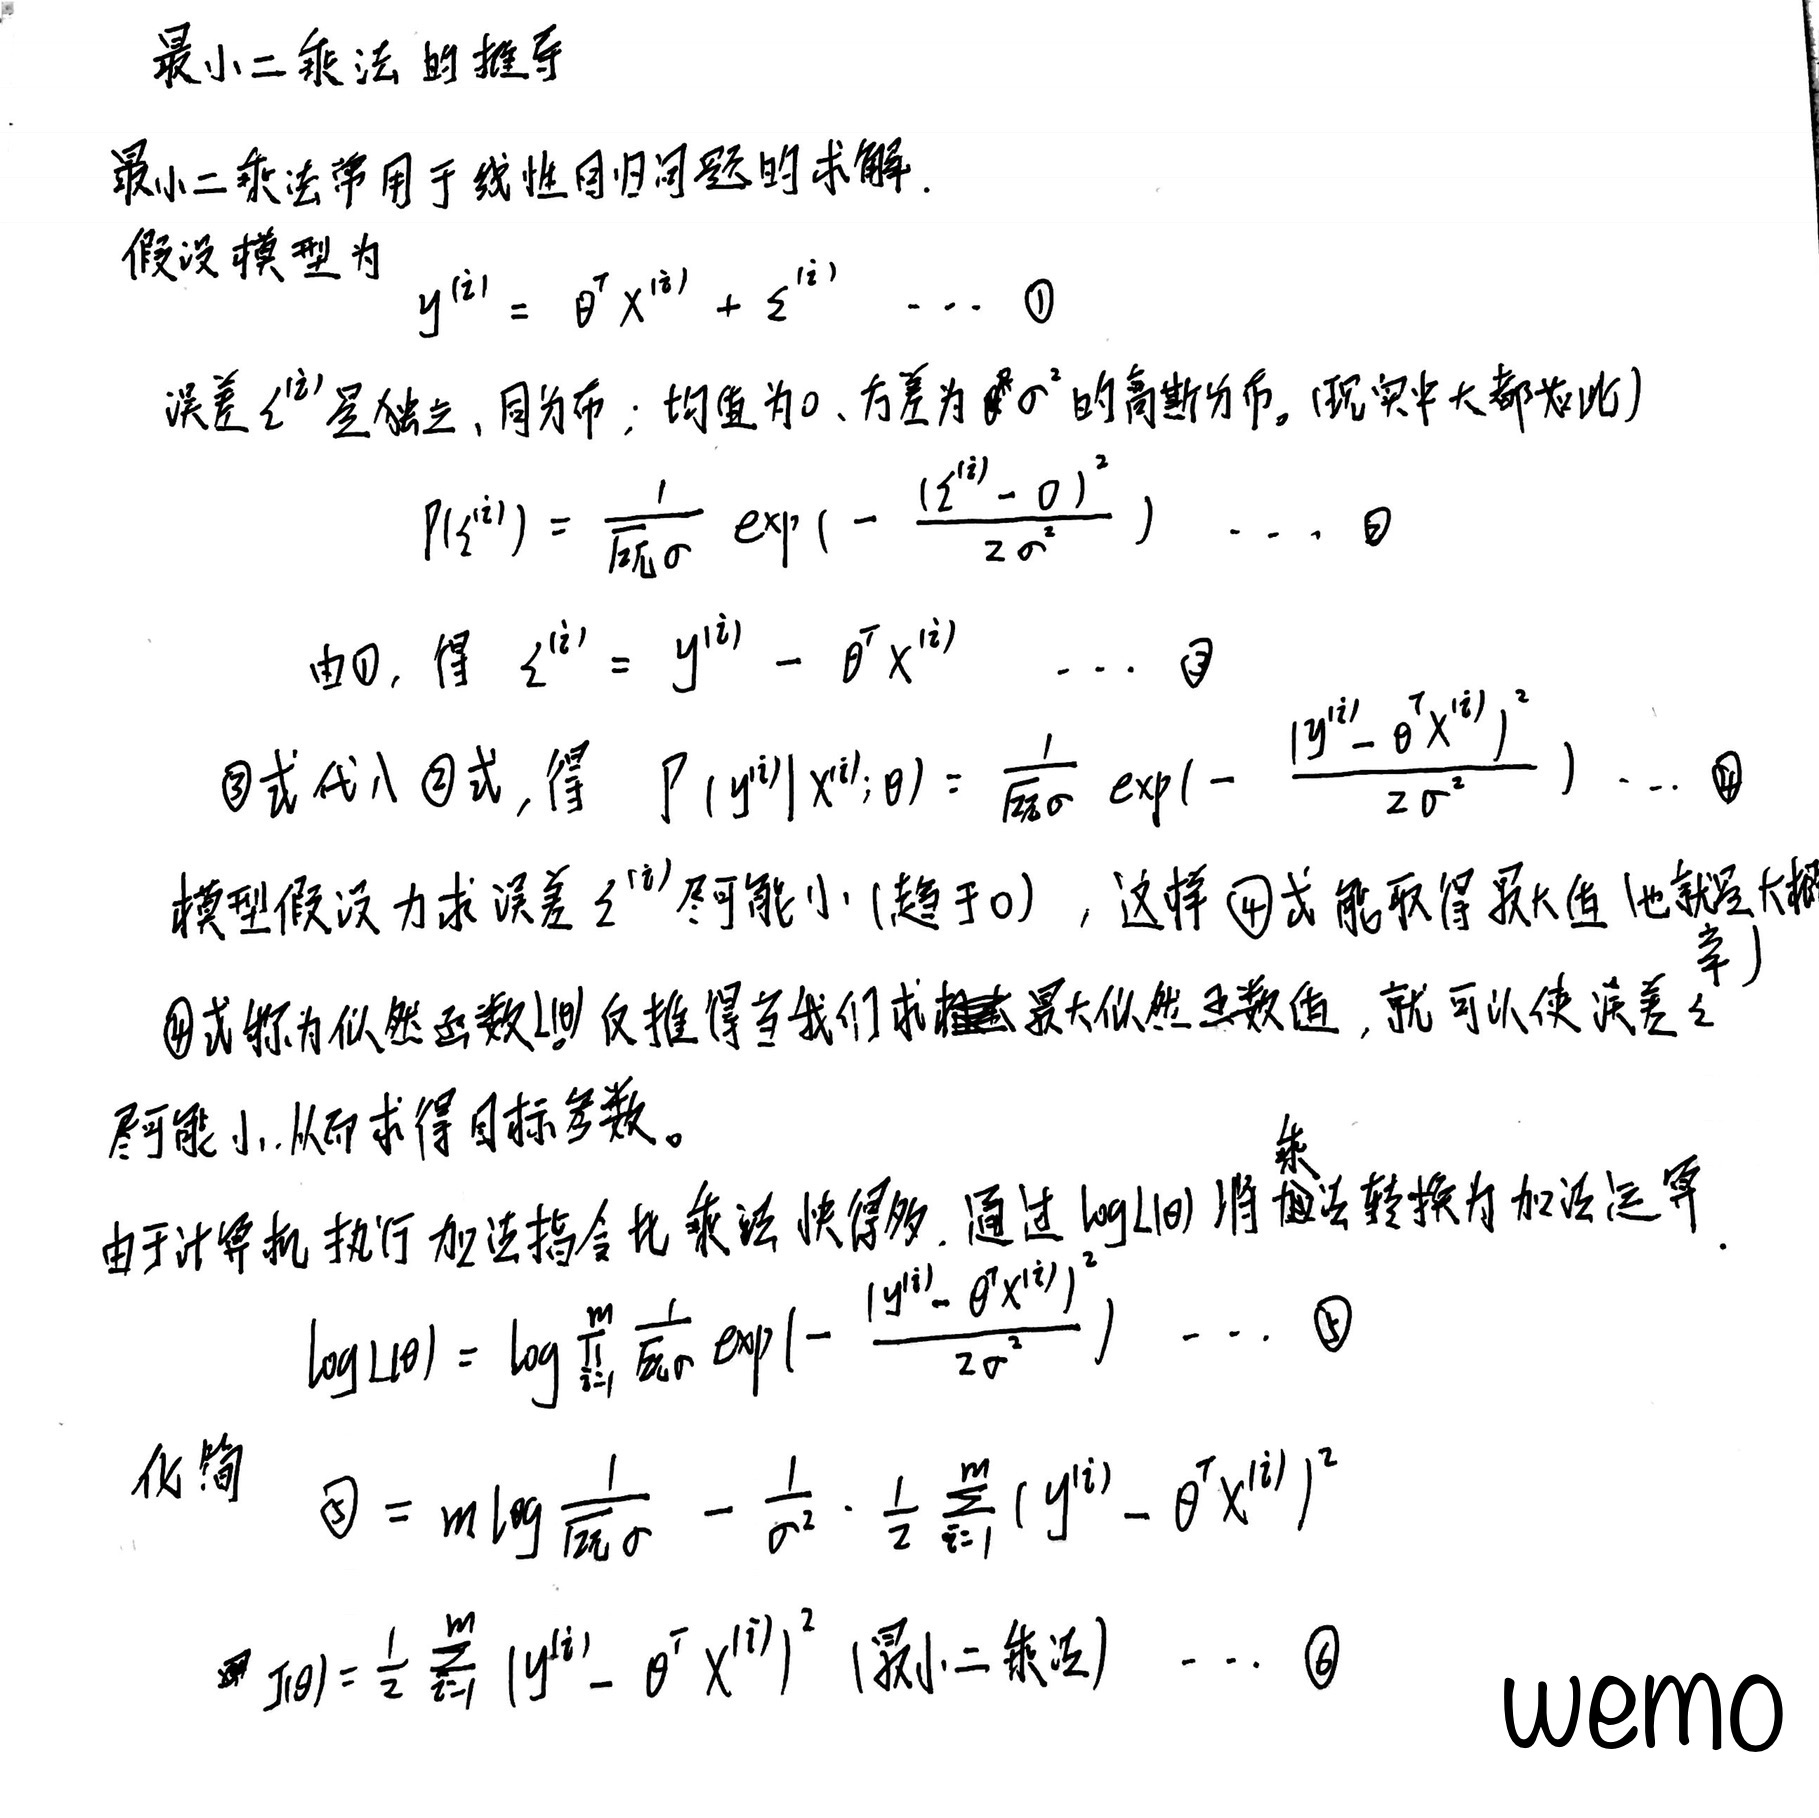 最小二乘法的推导
最小二乘法常用于线性回归问题的求解.
假设模型为
y^(i) = θ^T x^(i) + ε^(i) ---- ①
误差 ε^(i) 是独立、同分布;均值为0、方差为 σ² 的高斯分布。(现实中大都如此)
P(ε^(i)) = 1/(√2π σ) exp(- (ε^(i) - 0)²/(2σ²)) ---- ②
由①, 得 ε^(i) = y^(i) - θ^T x^(i) ---- ③
③式代入②式, 得 P(y^(i)|x^(i);θ) = 1/(√2π σ) exp(- (y^(i) - θ^T x^(i))²/(2σ²)) ---- ④
模型假设力求误差 ε^(i) 尽可能小(趋于0), 这样④式能取得最大值(也就是大概率)
④式称为似然函数L(θ) 反推得当我们求 最大似然函数值, 就可以使误差 ε
尽可能小. 从而求得目标参数。
由于计算机执行加法指令比乘法快得多. 通过 logL(θ) 将乘法转换为加法运算.
logL(θ) = log ∏_{i=1}^{m} 1/(√2π σ) exp(- (y^(i) - θ^T x^(i))²/(2σ²)) ---- ⑤
化简
⑤ = m log 1/(√2π σ) - 1/σ² · 1/2 ∑_{i=1}^{m} (y^(i) - θ^T x^(i))²
J(θ) = 1/2 ∑_{i=1}^{m} (y^(i) - θ^T x^(i))² (最小二乘法) ---- ⑥
wemo